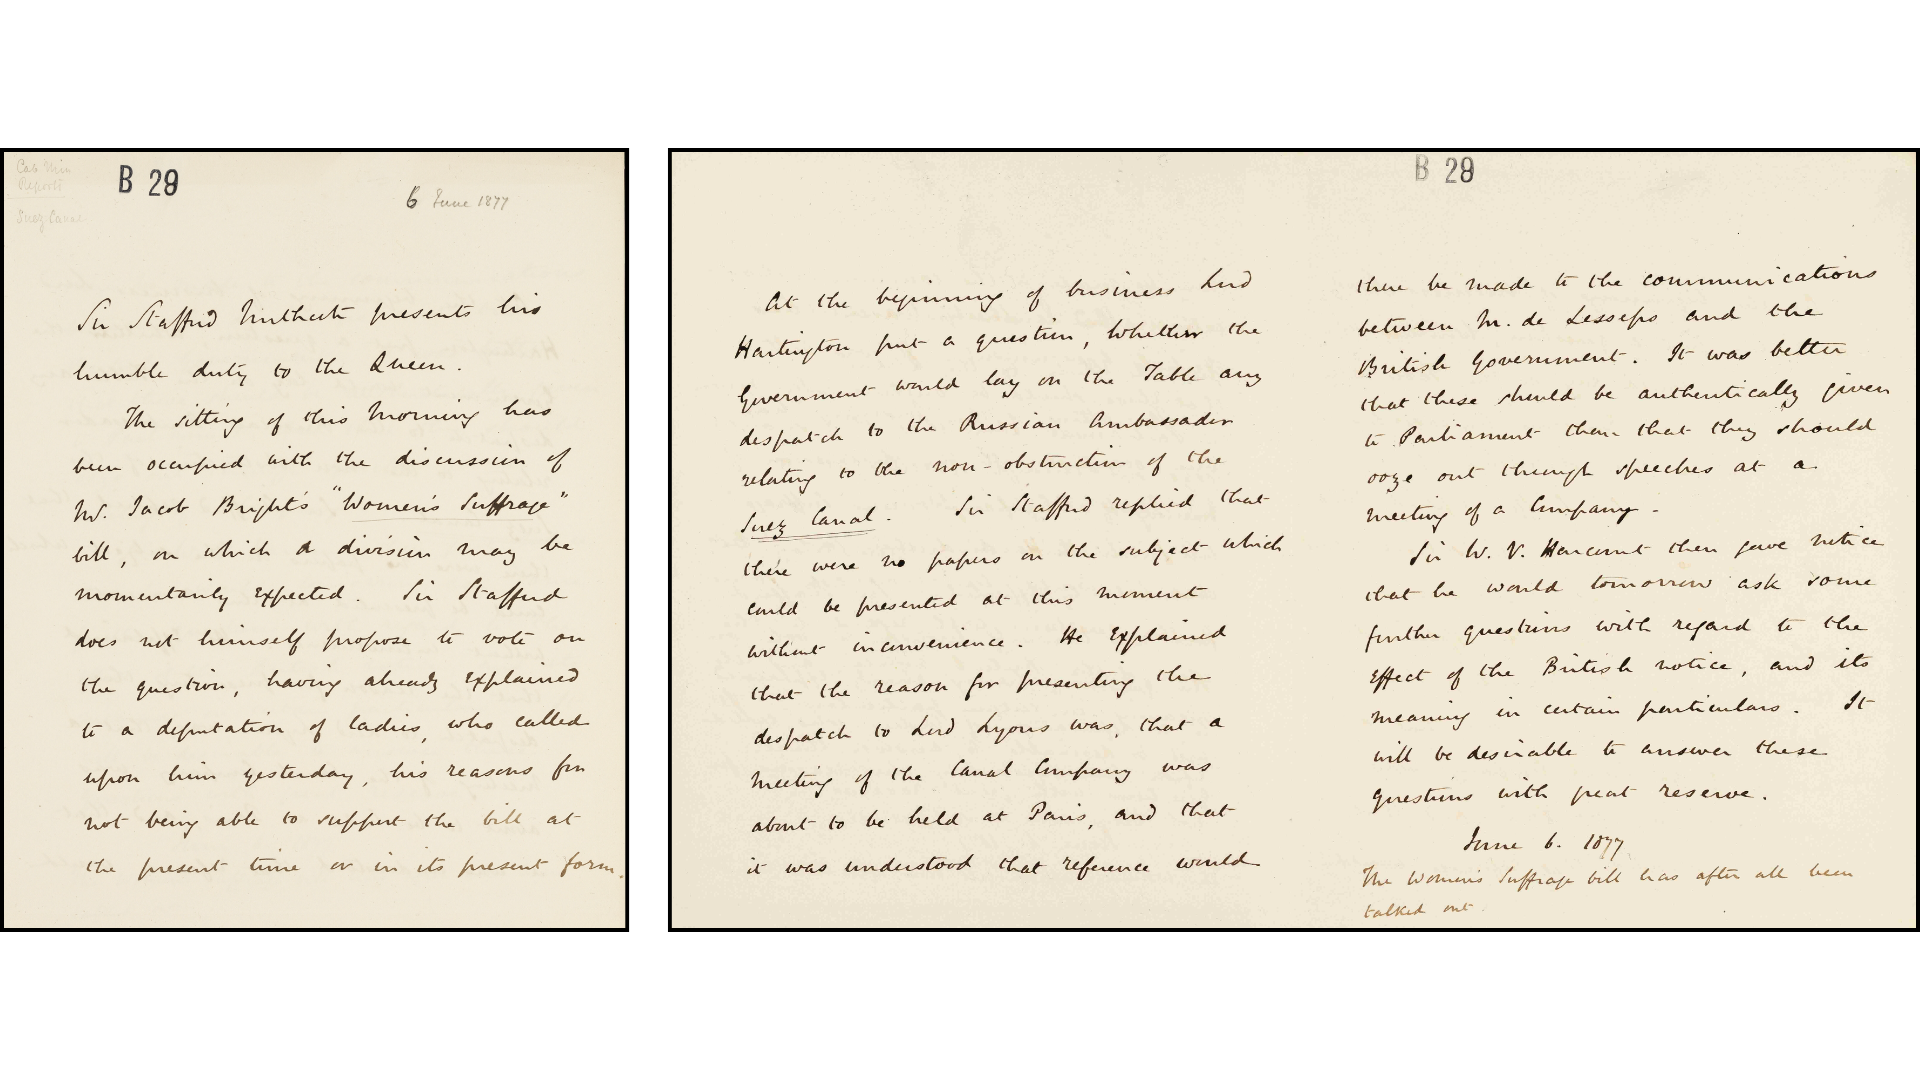 Cab. Min
Reports
Suez Canal
B 29
6 June 1877
Sir Stafford Northcote presents his
humble duty to the Queen.
The sitting of this morning has
been occupied with the discussion of
Mr. Jacob Bright's "Women's Suffrage"
bill, on which a division may be
momentarily expected. Sir Stafford
does not himself propose to vote on
the question, having already explained
to a deputation of ladies, who called
upon him yesterday, his reasons for
not being able to support the bill at
the present time or in its present form.
At the beginning of business Lord
Hartington put a question, whether the
Government would lay on the Table any
despatch to the Russian Ambassador
relating to the non-obstruction of the
Suez Canal. Sir Stafford replied that
there were no papers on the subject which
could be presented at this moment
without inconvenience. He explained
that the reason for presenting the
despatch to Lord Lyons was, that a
meeting of the Canal Company was
about to be held at Paris, and that
it was understood that reference would
B 29
there be made to the communications
between M. de Lesseps and the
British Government. It was better
that these should be authentically given
to Parliament than that they should
ooze out through speeches at a
meeting of a Company.
Sir W. V. Harcourt then gave notice
that he would tomorrow ask some
further questions with regard to the
effect of the British notice, and its
meaning in certain particulars. It
will be desirable to answer these
questions with great reserve.
June 6. 1877
The Women's Suffrage bill has after all been
talked out.